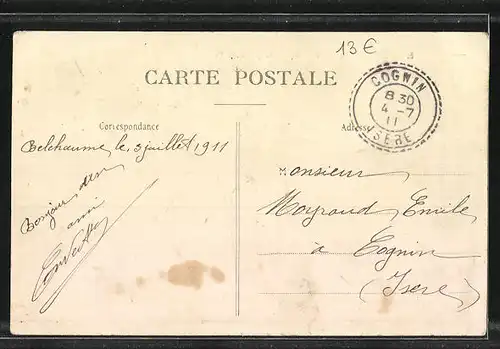 13€
CARTE POSTALE
COGNIN
8 30
4 - 7
11
ISERE
Correspondance
Adresse
Belchaume le 3 juillet 1911
Monsieur
Bonjour d'un
ami
Moyroud Emile
à Cognin
(Isere)